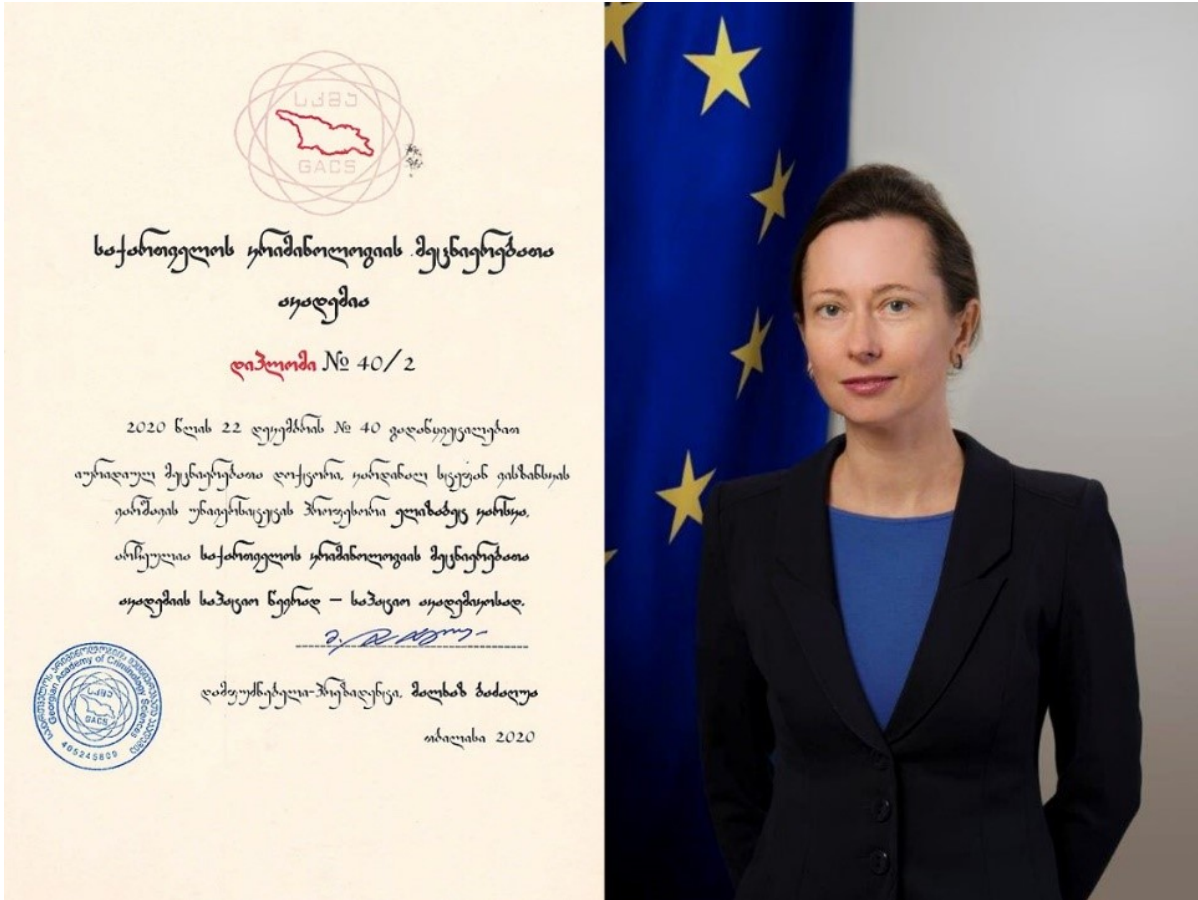 სკმა
GACS
საქართველოს კრიმინოლოგიის მეცნიერებათა
აკადემია
დიპლომი № 40/2
2020 წლის 22 დეკემბრის № 40 გადაწყვეტილებით
იურიდიულ მეცნიერებათა დოქტორი, კარდინალ სტეფან ვისზინსკის
ვარშავის უნივერსიტეტის პროფესორი ელიზაბეტ კარსკა,
არჩეულია საქართველოს კრიმინოლოგიის მეცნიერებათა
აკადემიის საპატიო წევრად – საპატიო აკადემიკოსად.
დამფუძნებელი-პრეზიდენტი, მალხაზ ბაძაღუა
თბილისი 2020
საქართველოს კრიმინოლოგიის მეცნიერებათა აკადემია
Georgian Academy of Criminology Sciences
სკმა
GACS
405245809